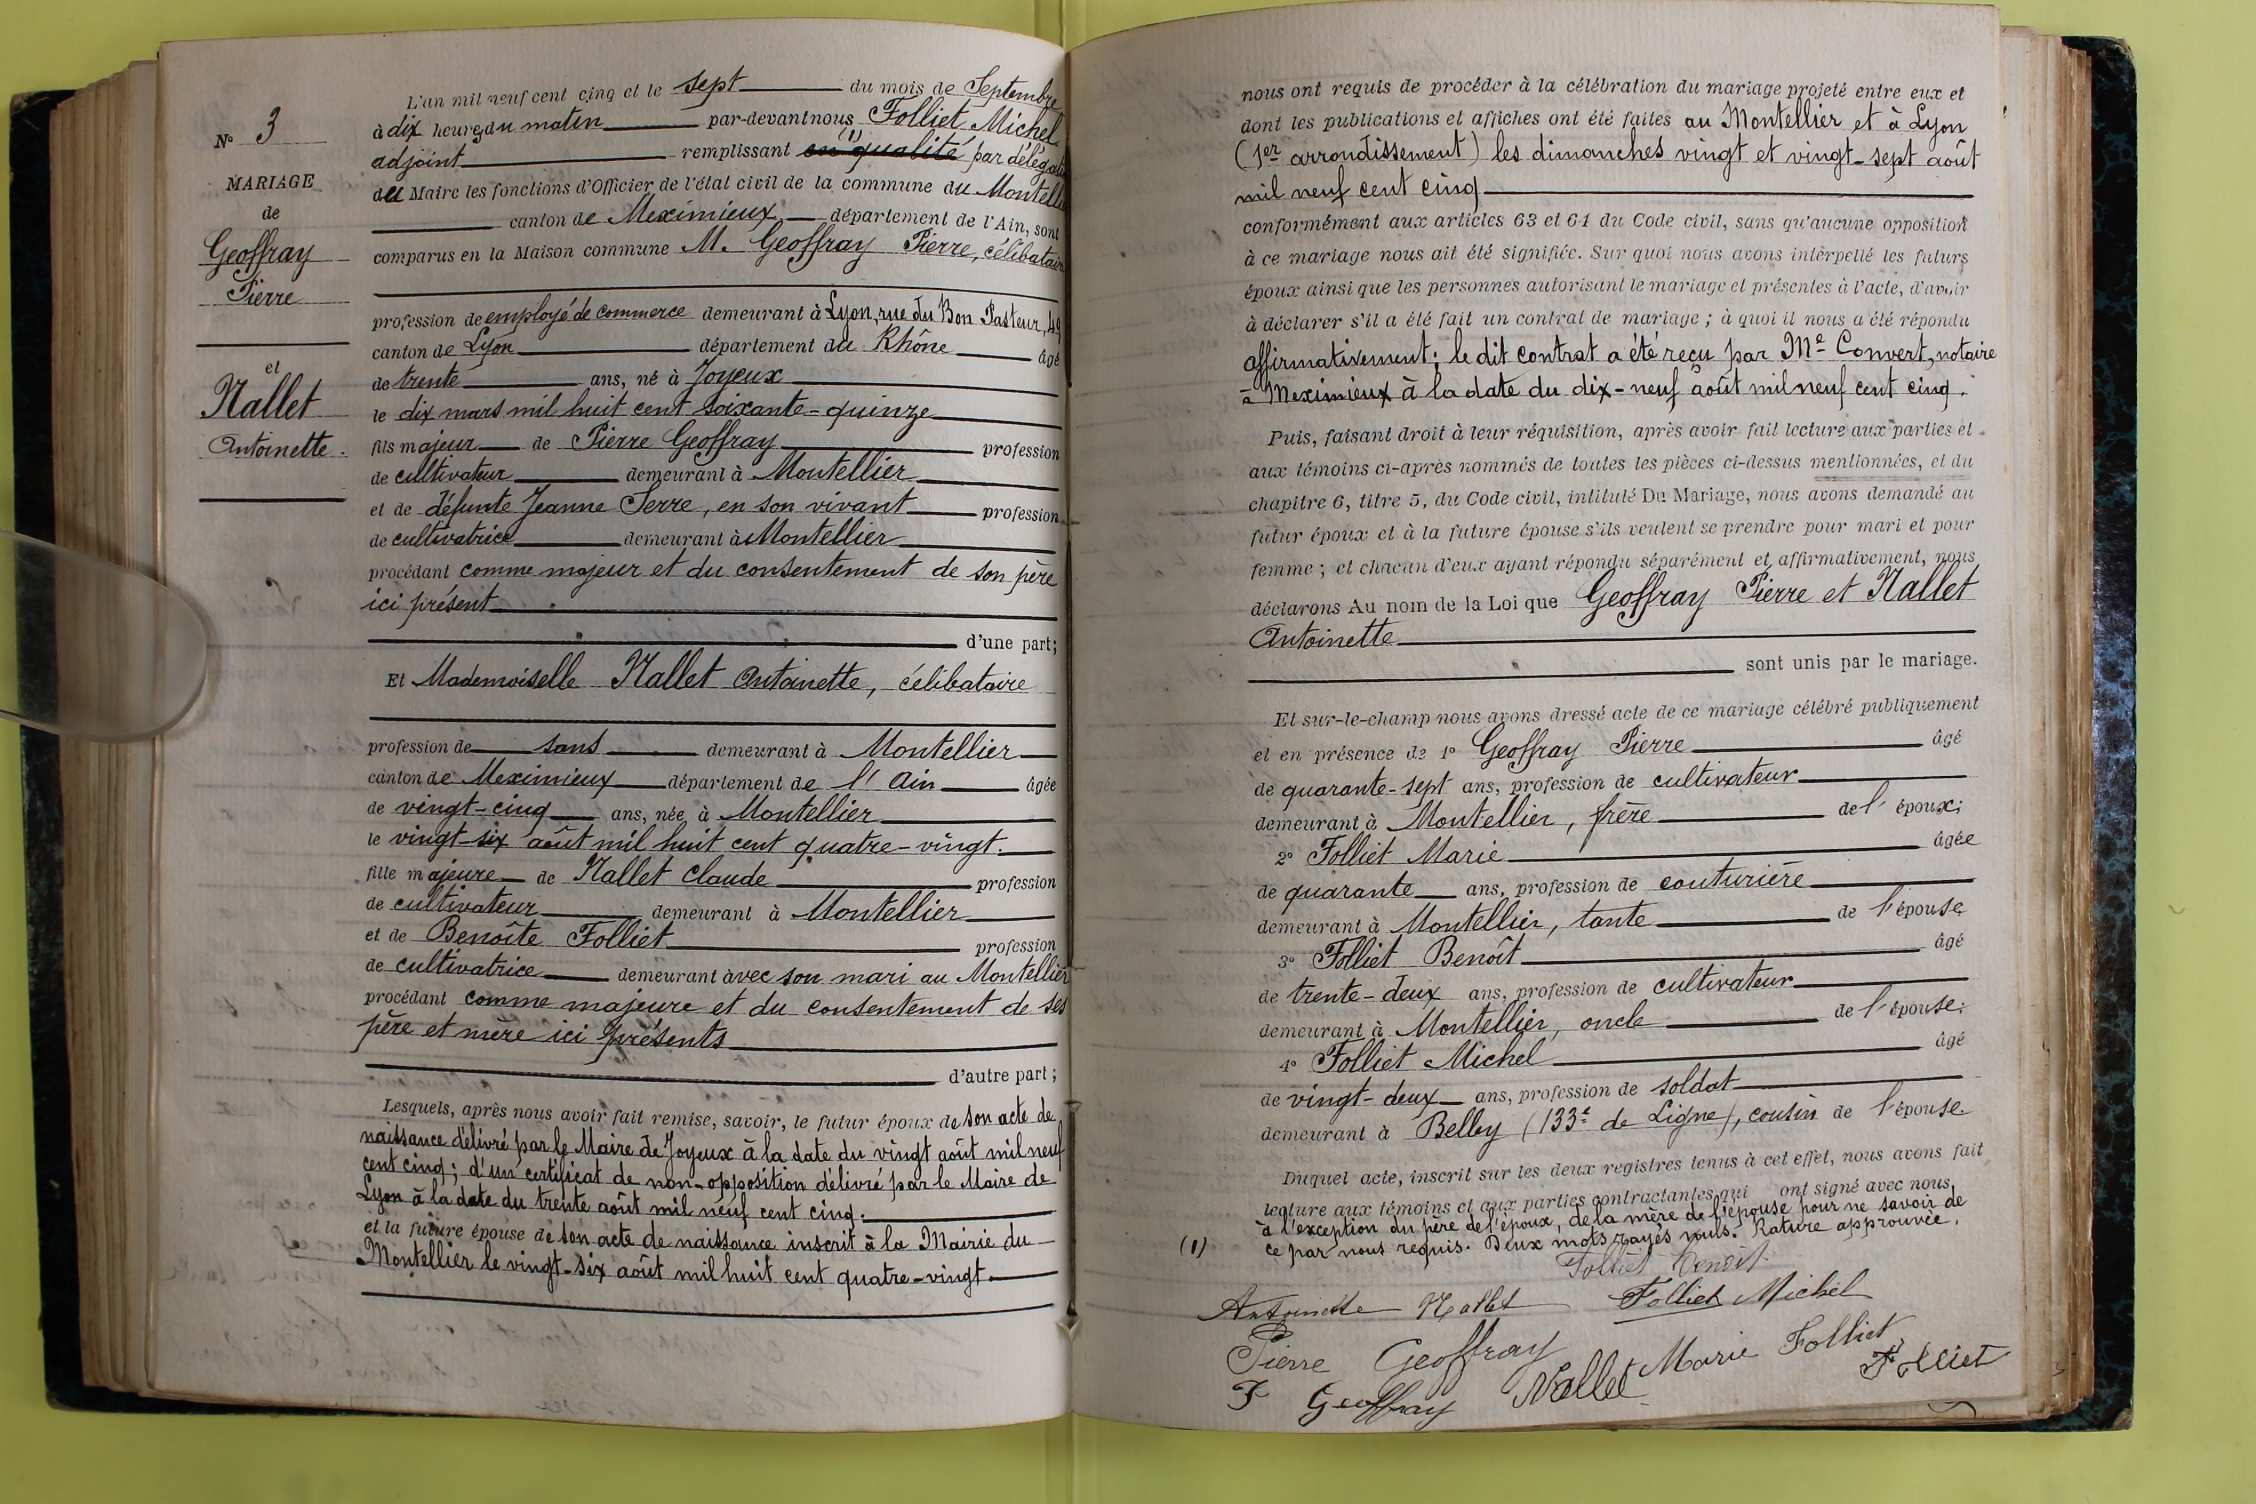 N° 3
MARIAGE
de
Geoffray
Pierre
et
Nallet
Antoinette.
L'an mil neuf cent cinq et le sept du mois de Septembre
à dix heures du matin par-devant nous Folliet Michel
adjoint remplissant en qualité (1) par délégation
du Maire les fonctions d'Officier de l'état civil de la commune du Montellier
canton de Meximieux département de l'Ain, sont
comparus en la Maison commune M. Geoffray Pierre, célibataire
profession de employé de commerce demeurant à Lyon, rue du Bon Pasteur, 49
canton de Lyon département du Rhône âgé
de trente ans, né à Joyeux
le dix mars mil huit cent soixante-quinze
fils majeur de Pierre Geoffray profession
de cultivateur demeurant à Montellier
et de défunte Jeanne Serre, en son vivant profession
de cultivatrice demeurant à Montellier
procédant comme majeur et du consentement de son père
ici présent
d'une part;
Et Mademoiselle Nallet Antoinette, célibataire
profession de sans demeurant à Montellier
canton de Meximieux département de l'Ain âgée
de vingt-cinq ans, née à Montellier
le vingt-six août mil huit cent quatre-vingt.
fille majeure de Nallet Claude profession
de cultivateur demeurant à Montellier
et de Benoîte Folliet profession
de cultivatrice demeurant avec son mari au Montellier
procédant comme majeure et du consentement de ses
père et mère ici présents
d'autre part;
Lesquels, après nous avoir fait remise, savoir, le futur époux de son acte de
naissance délivré par le Maire de Joyeux à la date du vingt août mil neuf
cent cinq; d'un certificat de non-opposition délivré par le Maire de
Lyon à la date du trente août mil neuf cent cinq.
et la future épouse de son acte de naissance inscrit à la Mairie du
Montellier le vingt-six août mil huit cent quatre-vingt
nous ont requis de procéder à la célébration du mariage projeté entre eux et
dont les publications et affiches ont été faites au Montellier et à Lyon
(1er arrondissement) les dimanches vingt et vingt-sept août
mil neuf cent cinq
conformément aux articles 63 et 64 du Code civil, sans qu'aucune opposition
à ce mariage nous ait été signifiée. Sur quoi nous avons interpellé les futurs
époux ainsi que les personnes autorisant le mariage et présentes à l'acte, d'avoir
à déclarer s'il a été fait un contrat de mariage; à quoi il nous a été répondu
affirmativement; le dit contrat a été reçu par Me Convert, notaire
à Meximieux à la date du dix-neuf août mil neuf cent cinq.
Puis, faisant droit à leur réquisition, après avoir fait lecture aux parties et
aux témoins ci-après nommés de toutes les pièces ci-dessus mentionnées, et du
chapitre 6, titre 5, du Code civil, intitulé Du Mariage, nous avons demandé au
futur époux et à la future épouse s'ils veulent se prendre pour mari et pour
femme; et chacun d'eux ayant répondu séparément et affirmativement, nous
déclarons Au nom de la Loi que Geoffray Pierre et Nallet
Antoinette
sont unis par le mariage.
Et sur-le-champ nous avons dressé acte de ce mariage célébré publiquement
et en présence de 1° Geoffray Pierre âgé
de quarante-sept ans, profession de cultivateur
demeurant à Montellier, frère de l'époux;
2° Folliet Marie âgée
de quarante ans, profession de couturière
demeurant à Montellier, tante de l'épouse
3° Folliet Benoît âgé
de trente-deux ans, profession de cultivateur
demeurant à Montellier, oncle de l'épouse;
4° Folliet Michel âgé
de vingt-deux ans, profession de soldat
demeurant à Belley (133e de Ligne), cousin de l'épouse
Duquel acte, inscrit sur les deux registres tenus à cet effet, nous avons fait
lecture aux témoins et aux parties contractantes qui ont signé avec nous
à l'exception du père de l'époux, de la mère de l'épouse pour ne savoir de
(1) ce par nous requis. Deux mots rayés nuls. Rature approuvée.
Folliet Benoît
Antoinette Nallet Folliet Michel
Pierre Geoffray Marie Folliet
P Geoffray Nallet Folliet